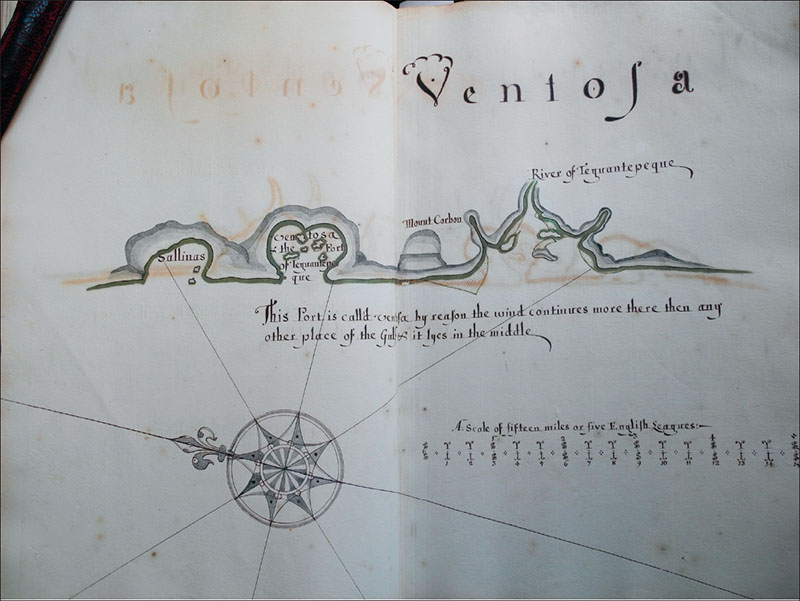 Ventosa
River of Tequantepeque
Mount Corbon
Sallinas
ventosa
the Port
of Tequantepe
que
This Port is calld by reason the wind continues more there then any
other place of the Gulf & it lyes in the middle
A Scale of fifteen miles or five English Leagues:
1 2 3 4 5
1 3 4 6 7 8 9 10 11 12 13 14